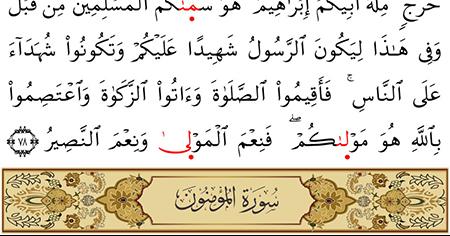 حَرَجٍ ۚ مِّلَّةَ أَبِيكُمْ إِبْرَٰهِيمَ ۚ هُوَ سَمَّىٰكُمُ ٱلْمُسْلِمِينَ مِن قَبْلُ
وَفِى هَـٰذَا لِيَكُونَ ٱلرَّسُولُ شَهِيدًا عَلَيْكُمْ وَتَكُونُوا۟ شُهَدَآءَ
عَلَى ٱلنَّاسِ ۚ فَأَقِيمُوا۟ ٱلصَّلَوٰةَ وَءَاتُوا۟ ٱلزَّكَوٰةَ وَٱعْتَصِمُوا۟
بِٱللَّهِ هُوَ مَوْلَىٰكُمْ ۖ فَنِعْمَ ٱلْمَوْلَىٰ وَنِعْمَ ٱلنَّصِيرُ ﴿٧٨﴾
سُورَةُ المُؤْمِنُونَ